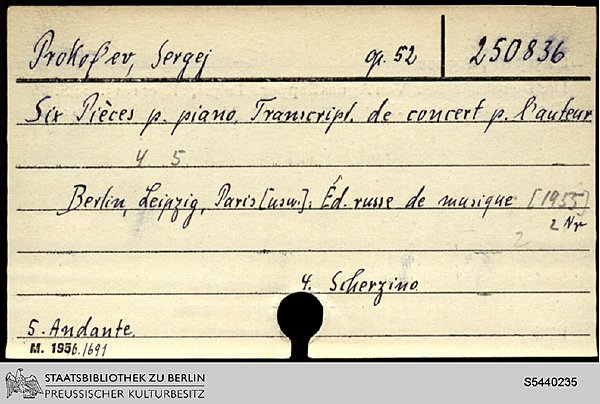 Prokofev, Sergej op. 52 250836
Six Pièces p. piano, Transcript. de concert p. l'auteur
4 5
Berlin, Leipzig, Paris [usw.]: Éd. russe de musique [1955]
2 Nr
2
4. Scherzino
5. Andante.
M. 1956/691
STAATSBIBLIOTHEK ZU BERLIN
PREUSSISCHER KULTURBESITZ
S5440235